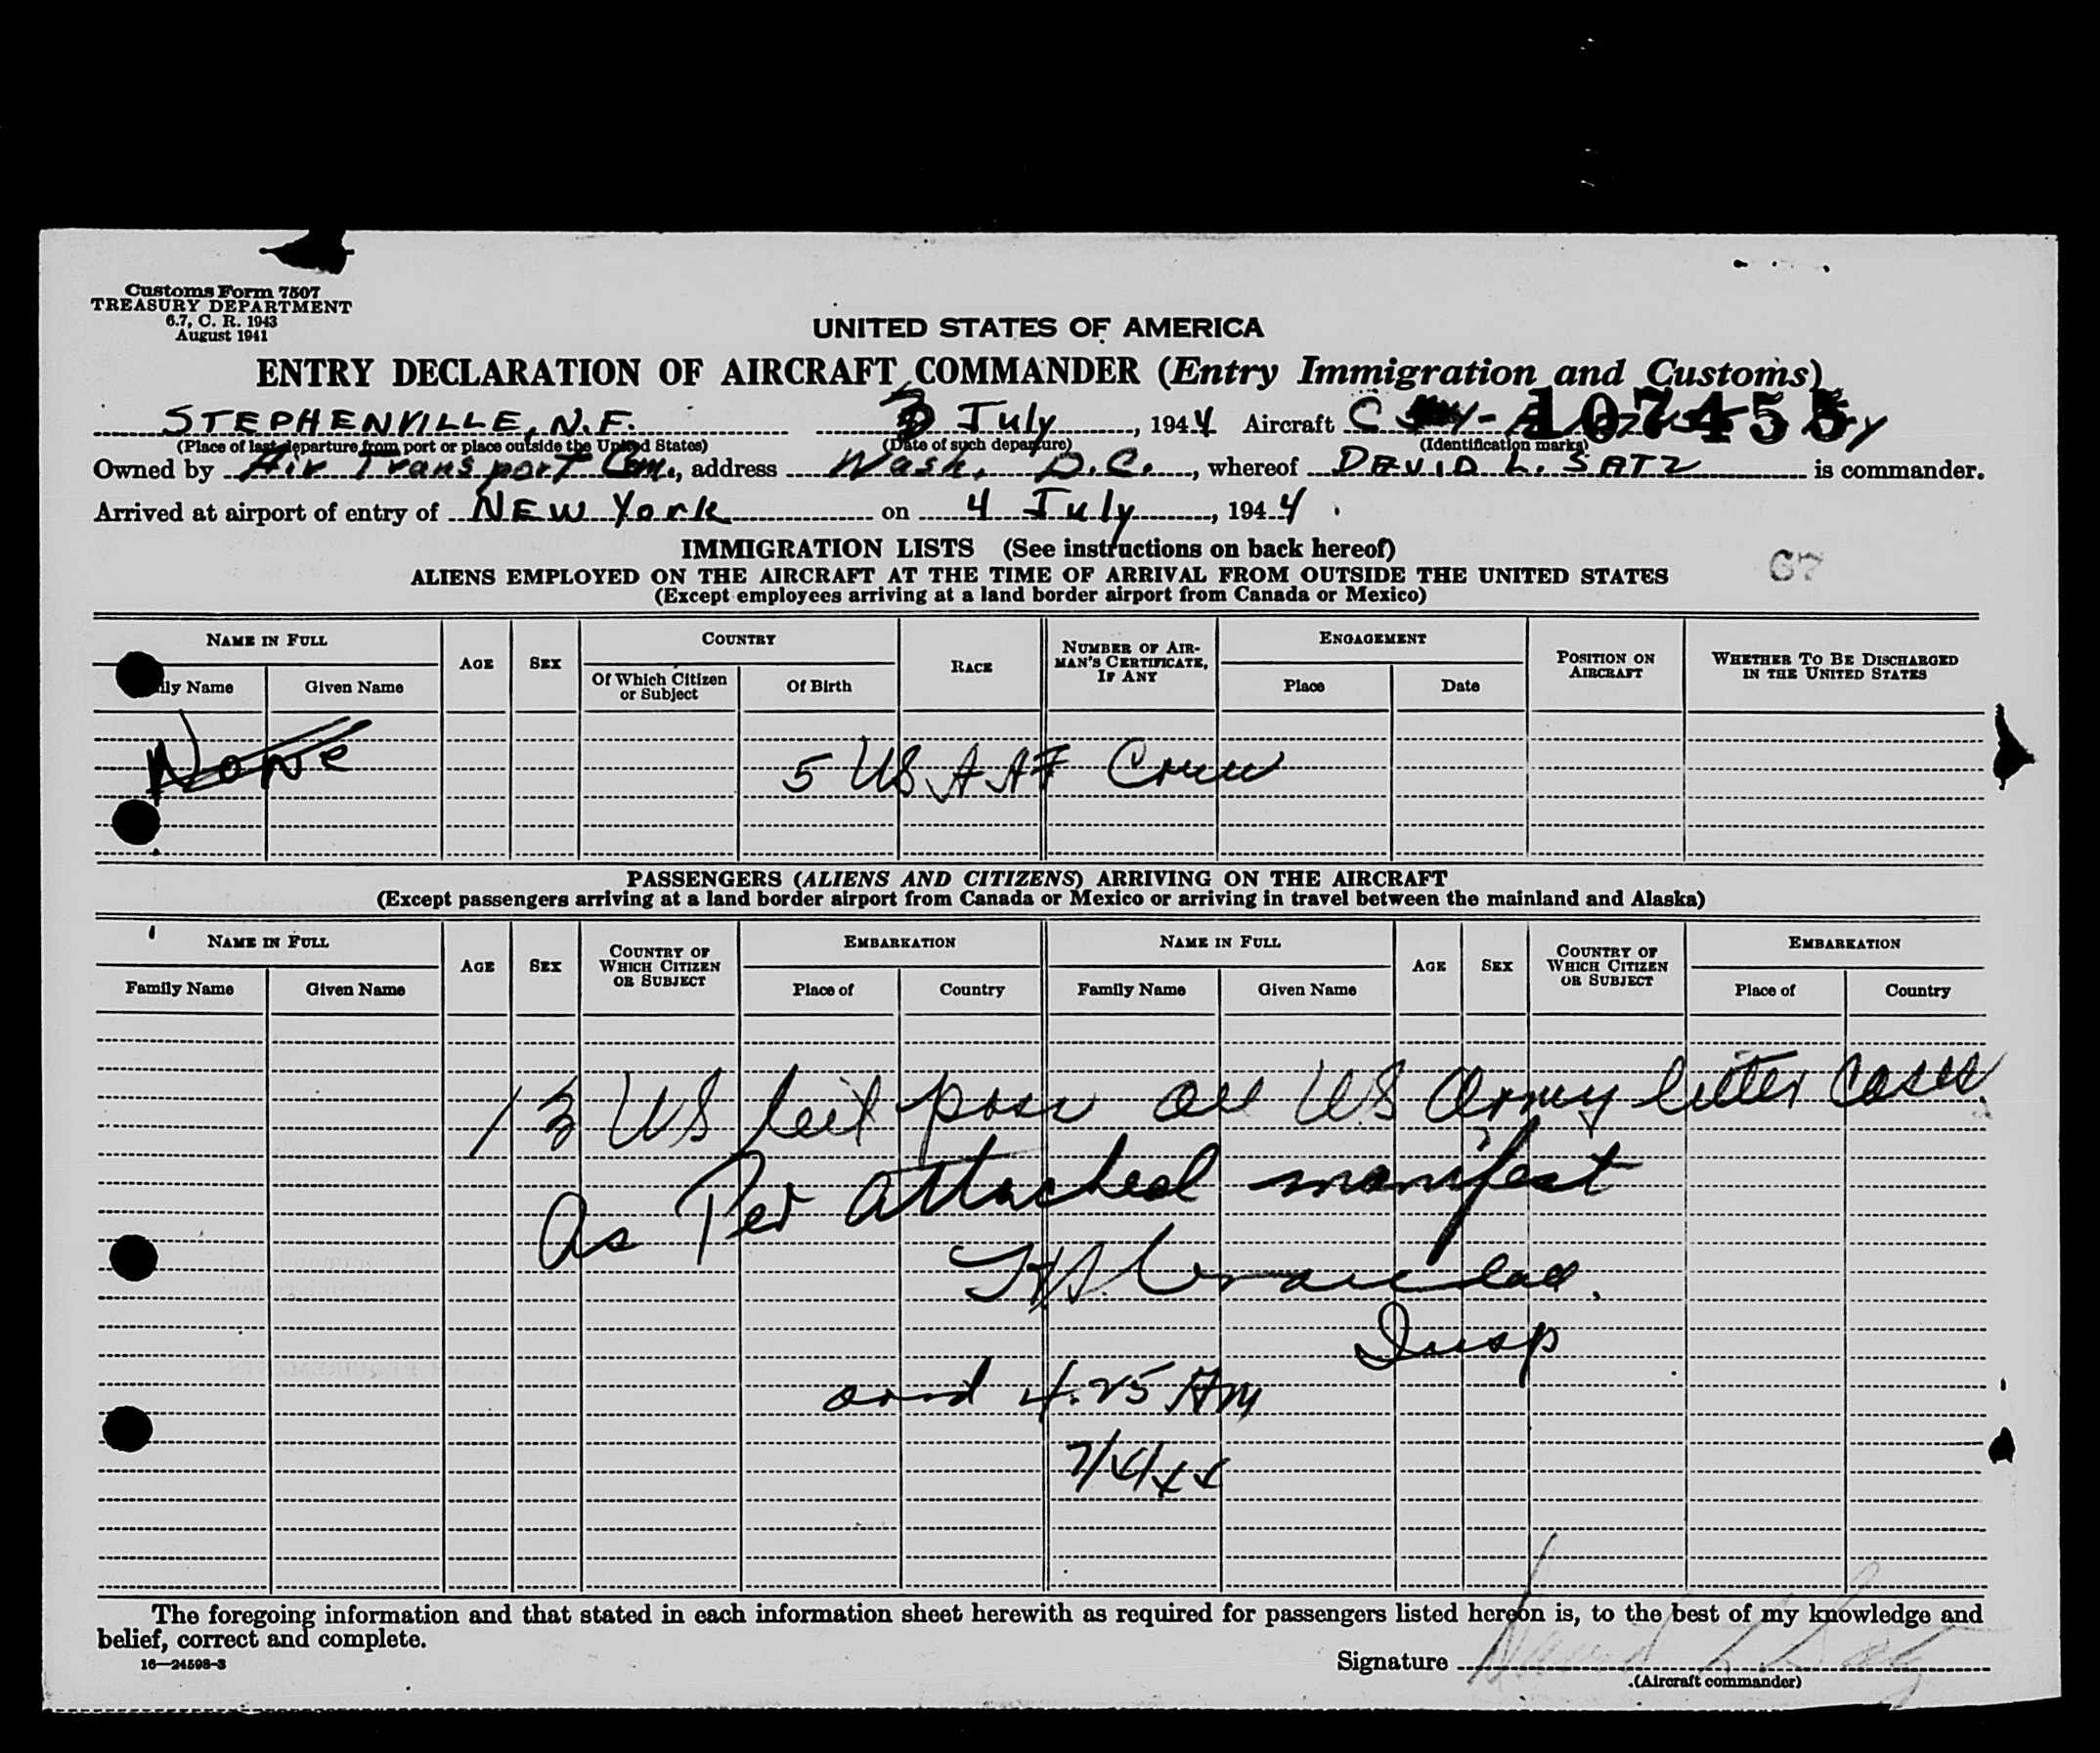 Customs Form 7507
TREASURY DEPARTMENT
6.7, C. R. 1943
August 1941
UNITED STATES OF AMERICA
ENTRY DECLARATION OF AIRCRAFT COMMANDER (Entry Immigration and Customs)
107455
STEPHENVILLE, N.F. 3 July, 1944 Aircraft C
(Place of last departure from port or place outside the United States) (Date of such departure) (Identification marks)
Owned by Air Transport Com., address Wash, D.C., whereof DAVID L. SATZ is commander.
Arrived at airport of entry of NEW York on 4 July, 1944.
IMMIGRATION LISTS (See instructions on back hereof)
67
ALIENS EMPLOYED ON THE AIRCRAFT AT THE TIME OF ARRIVAL FROM OUTSIDE THE UNITED STATES
(Except employees arriving at a land border airport from Canada or Mexico)
NAME IN FULL AGE SEX COUNTRY RACE NUMBER OF AIRMAN'S CERTIFICATE, IF ANY ENGAGEMENT POSITION ON AIRCRAFT WHETHER TO BE DISCHARGED IN THE UNITED STATES
ly Name Given Name Of Which Citizen or Subject Of Birth Place Date
None 5 US AAF Crew
PASSENGERS (ALIENS AND CITIZENS) ARRIVING ON THE AIRCRAFT
(Except passengers arriving at a land border airport from Canada or Mexico or arriving in travel between the mainland and Alaska)
NAME IN FULL AGE SEX COUNTRY OF WHICH CITIZEN OR SUBJECT EMBARKATION NAME IN FULL AGE SEX COUNTRY OF WHICH CITIZEN OR SUBJECT EMBARKATION
Family Name Given Name Place of Country Family Name Given Name Place of Country
13 US cit pass all US Army litter cases.
As Per attached manifest
Insp
arvd 4.25 AM
7/4/44
The foregoing information and that stated in each information sheet herewith as required for passengers listed hereon is, to the best of my knowledge and
belief, correct and complete.
16—24598-3
Signature David L Satz
(Aircraft commander)